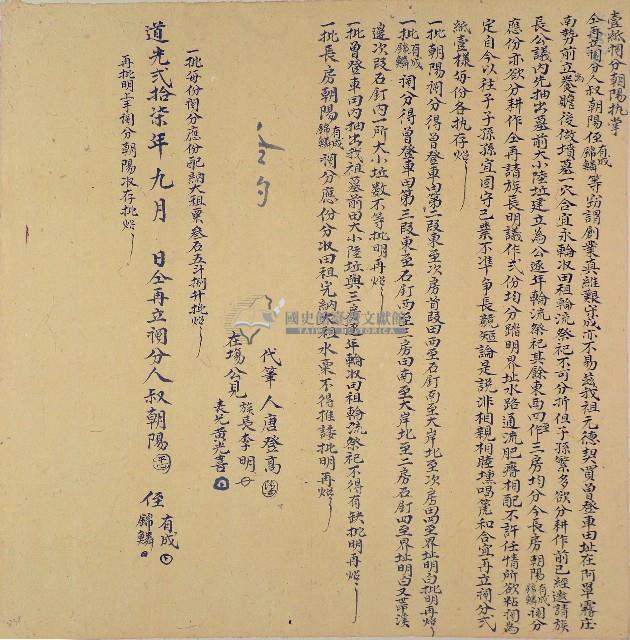 壹紙鬮分朝陽執業
仝再立鬮分人叔朝陽侄有成錦鱗等竊謂創業真維艱守成亦不易茲我祖元德契買曾登車田址在阿罩霧庄
南勢前立養贍後做墳墓一穴合宜永輪收田租輪流祭祀不可分折但子孫繁多欲分耕作前已經邀請族
長公議內先抽出墓前大小陸坵建立為公逐年輪流祭祀其餘東西四至作三房均分今長房朝陽有成錦鱗鬮分
應份亦欲分耕作仝再請族長明議作弍份均分踏明界址水路通流肥磽相配不許任情所欲粘鬮為
定自今以往子子孫孫宜固守己業不準爭長競短論是說非相親相睦壎唱箎和合宜再立鬮分弍
紙壹樣每份各執存炤
一批朝陽鬮分得曾登車田第二段東至次房首段田西至石釘南至大岸北至次房田四至界址明白批明再炤
一批有成錦鱗鬮分得曾登車田第三段東至石釘西至二房田南至大岸北至二房石釘四至界址明白又帶溪
邊次段石釘內一所大小坵數不等批明再炤
一批曾登車田內抽出我祖墓前田大小陸坵與二三房逐年輪收田租輪流祭祀不得有缺批明再炤
一批長房朝陽有成錦鱗鬮分應份分收田租完納大租水粟不得推諉批明再炤
代筆人唐登高
族長李明
在塲公見
表兄黃光喜
一批每份鬮分應份配納大租粟叁石五斗捌升批炤
道光弍拾柒年九月 日仝再立鬮分人叔朝陽
侄有成
錦鱗
再批明上手鬮分朝陽收存批炤
國史館臺灣文獻館
TAIWAN HISTORICA